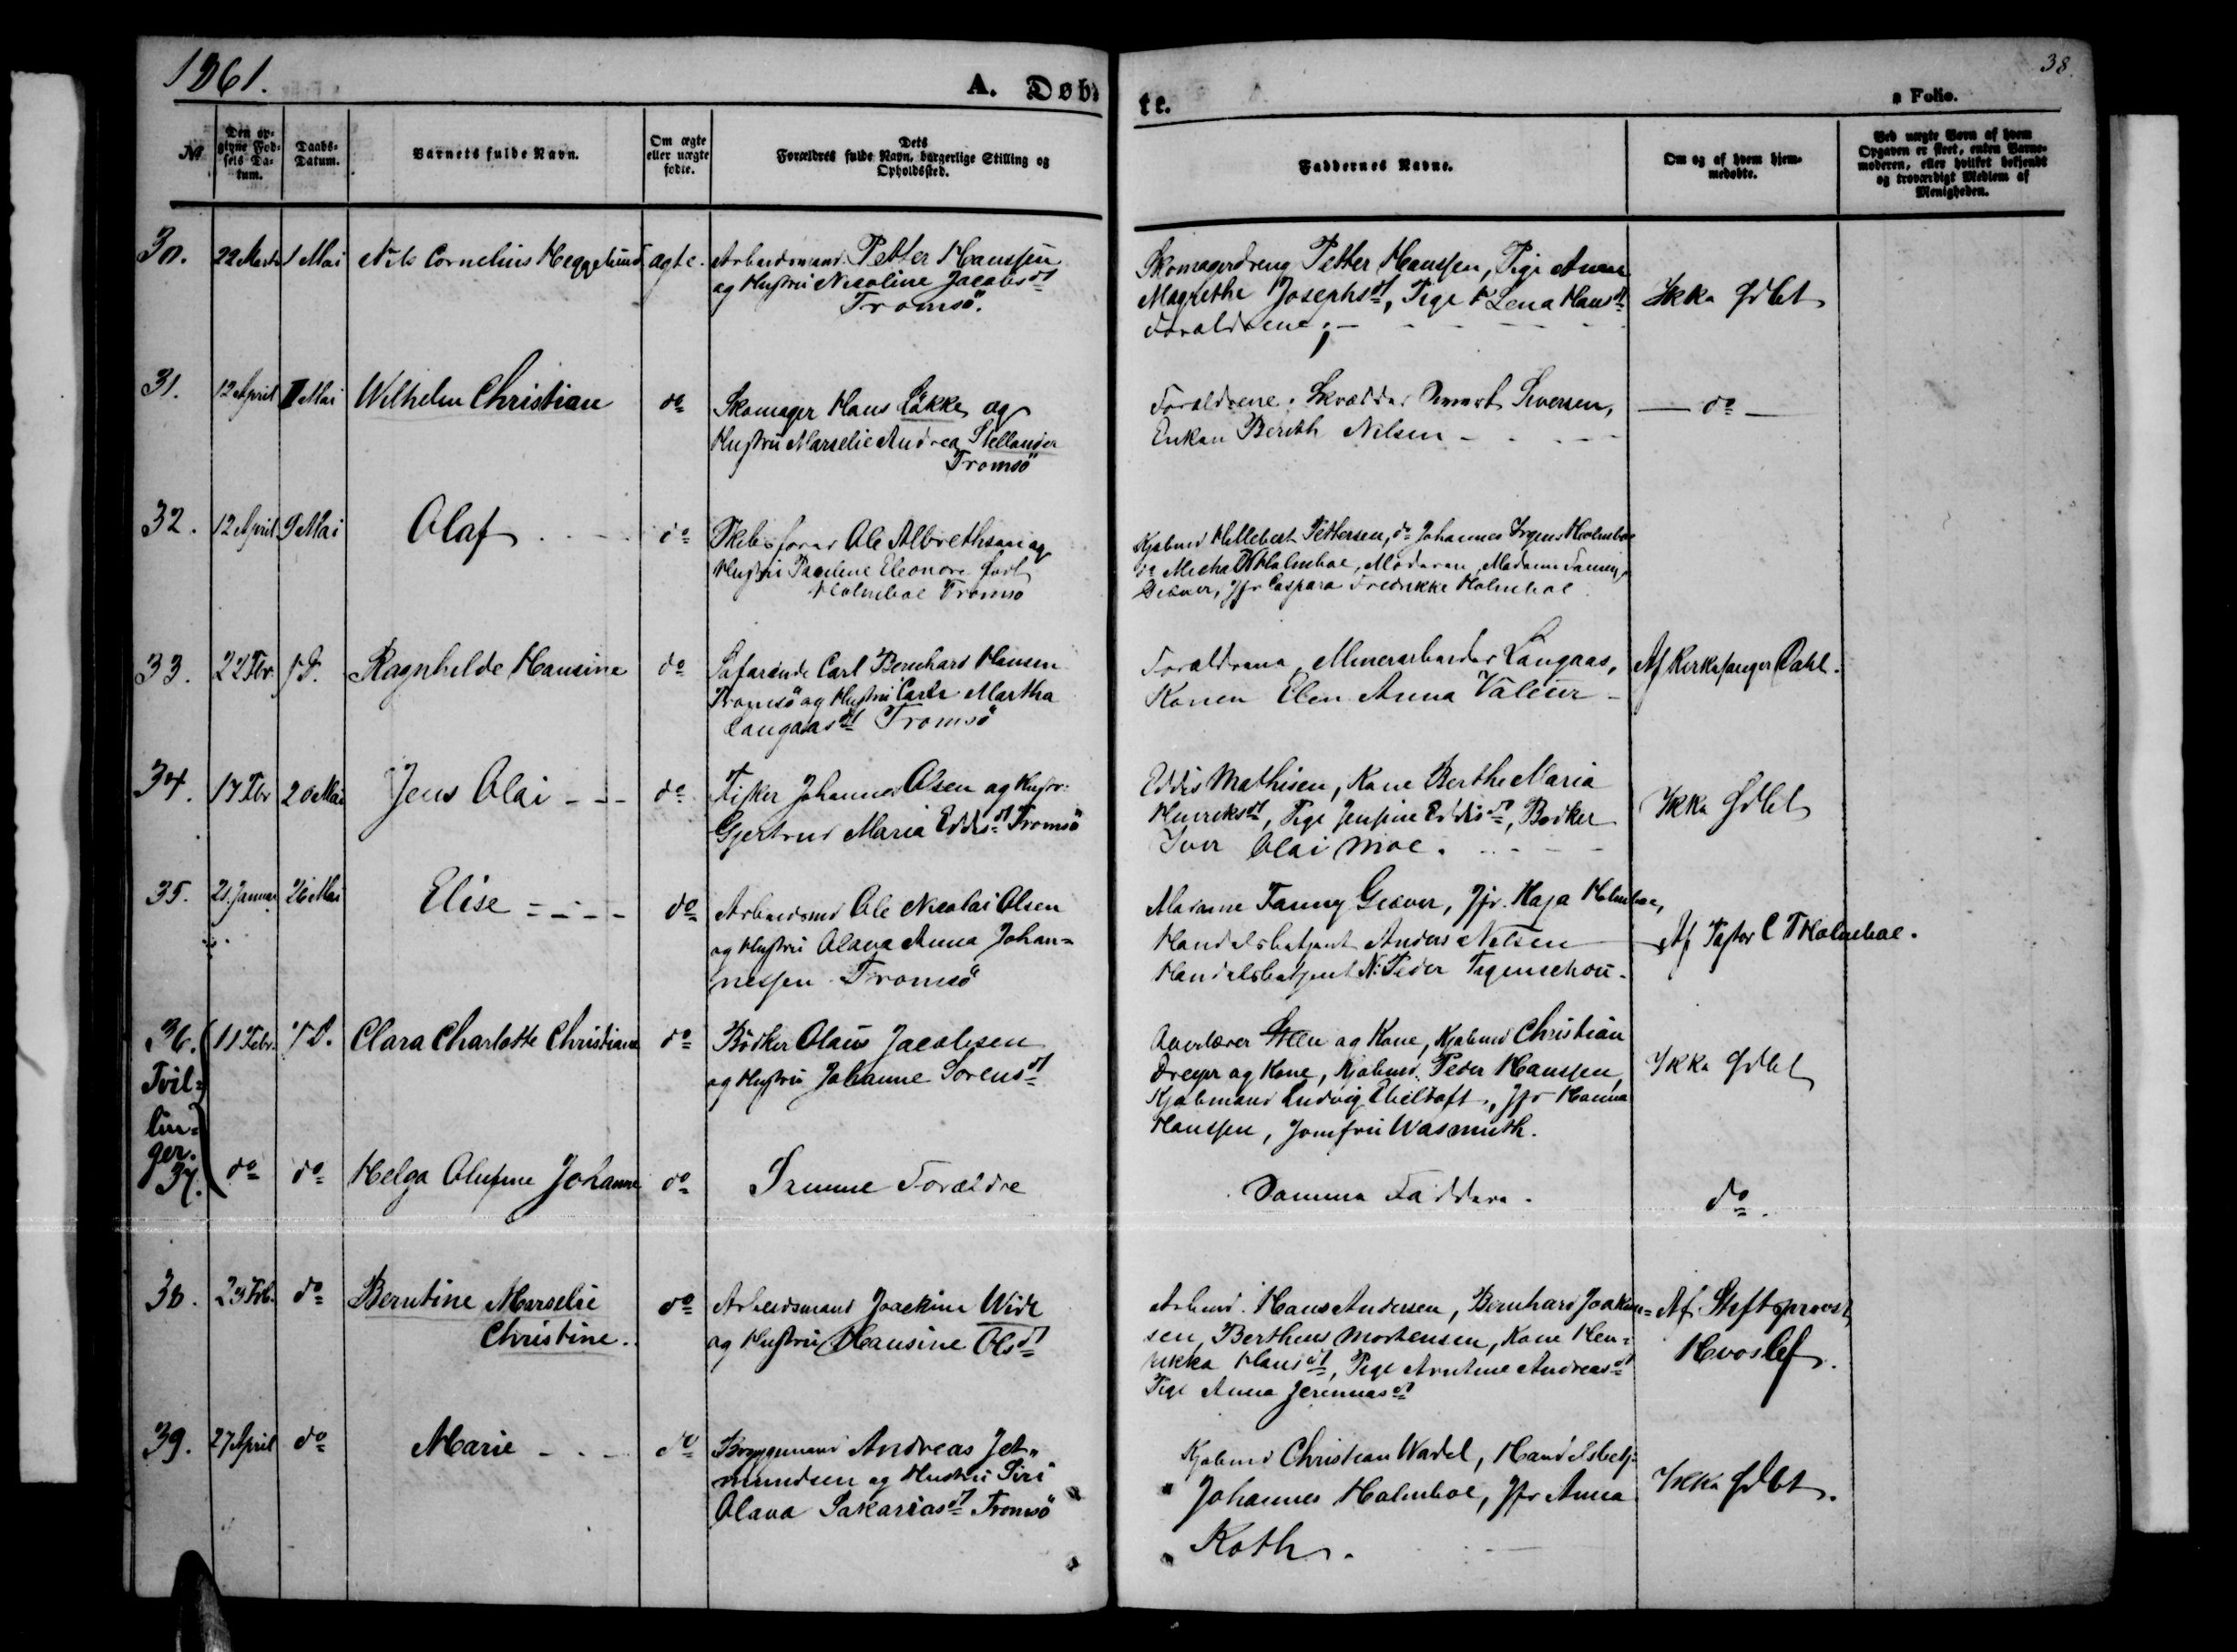 1861.
A. Døb-
te.
a Folie.
38.
No
Den op-
givne Fød-
sels Da-
tum.
Daabs-
Datum.
Barnets fulde Navn.
Om ægte
eller uægte
fødte.
Dets
Forældres fulde Navn, borgerlige Stilling og
Opholdssted.
Faddernes Navne.
Om og af hvem hjem-
medøbte.
Ved uægte Børn af hvem
Opgaven er skeet, enten Barne-
moderen, eller hvilket bekjendt
og troværdigt Medlem af
Menigheden.
30. 22 Marts 1 Mai Nils Cornelius Heggelund ægte.
Arbeidsmand Petter Hanssen
og Hustru Nicoline Jacobsdt
Tromsö.
Skomagerdreng Petter Hanssen, Pige Anne
Magrethe Josephsdt, Pige Lena Hansdt
Forældrene.
Ikke Hdbt
31. 12 April Mai Wilhelm Christian do
Skomager Hans Løkke og
Hustru Marselie Andrea Stellander
Tromsö
Forældrene. Skrædder Siversen,
Enken Berith Nilsen
do
32. 12 April 9 Mai Olaf do
Skibsfører Ole Albrethsen og
Hustru Pauline Eleonore født
Holmboe Tromsø
Kjøbmd Hillebert Pettersen, do Johannes Irgens Holmboe
do Micha Holmboe, Moderen, Madame Fanny
Giæver, Jfr Caspara Fredrikke Holmboe
33. 22 Fbr. S. D. Ragnhilde Hansine do
Søfarende Carl Bernhard Hansen
Tromsö og Hustru Martha
Langaasdt Tromsö
Forældrene, Minerarbeider Langaas,
Konen Elen Anna Valeur
Af Kirkesanger Dahl.
34. 17 Fbr 20 Mai Jens Olai do
Fisker Johannes Olsen og Hustr:
Gjertrud Maria Eddisdt Tromsö
Eddis Mathisen, Kone Berthe Maria
Henriksdt, Pige Jensine Eddisdt, Bødker
Iver Olai Moe.
Ikke Hdbt
35. 21 Januar 26 Mai Elise do
Arbeidsmd Ole Nicolai Olsen
og Hustru Olava Anna Johan-
nessen Tromsö
Madame Fanny Giæver, Jfr. Haja Holmboe,
Handelsbetjent Anders Nilsen
Handelsbetjent N: Peder Figenschou.
Af Pastor C T Holmboe.
36. 11 Febr. S. D. Clara Charlotte Christiane do
Tvil-
lin-
ger.
Bödker Olaus Jacobsen
og Hustru Johanne Sorensdt
Overlærer Steen og Kone, Kjøbmd Christian
Dreyer og Kone, Kjøbmd. Peder Hanssen,
Kjøbmand Ludvig Ebeltoft, Jfr Hanna
Hanssen, Jomfru Wasmuth.
Ikke Hdbt
37. do do Helga Olufine Johanne do
Samme Forældre
Samme Faddere.
do
38. 23 Feb. do Berntine Marselie
Christine. do
Arbeidsmand Joachim Wide
og Hustru Hansine Olsdt
Arbmd. Hans Andersen, Bernhard Joakim-
sen, Berthens Mortensen, Kone Hen-
rikka Hansdt, Pige Arntine Andreasdt
Pige Anna Jeremiasdt
Af Stiftsprovst
Hvoslef.
39. 27 April do Marie do
Bryggemand Andreas Jet-
mundsen og Hustru Siri
Olava Sakariasdt Tromsö
Kjøbmd Christian Wadel, Handelsbetj:
Johannes Holmboe, Jfr Anna
Koth.
Ikke Hdbt.